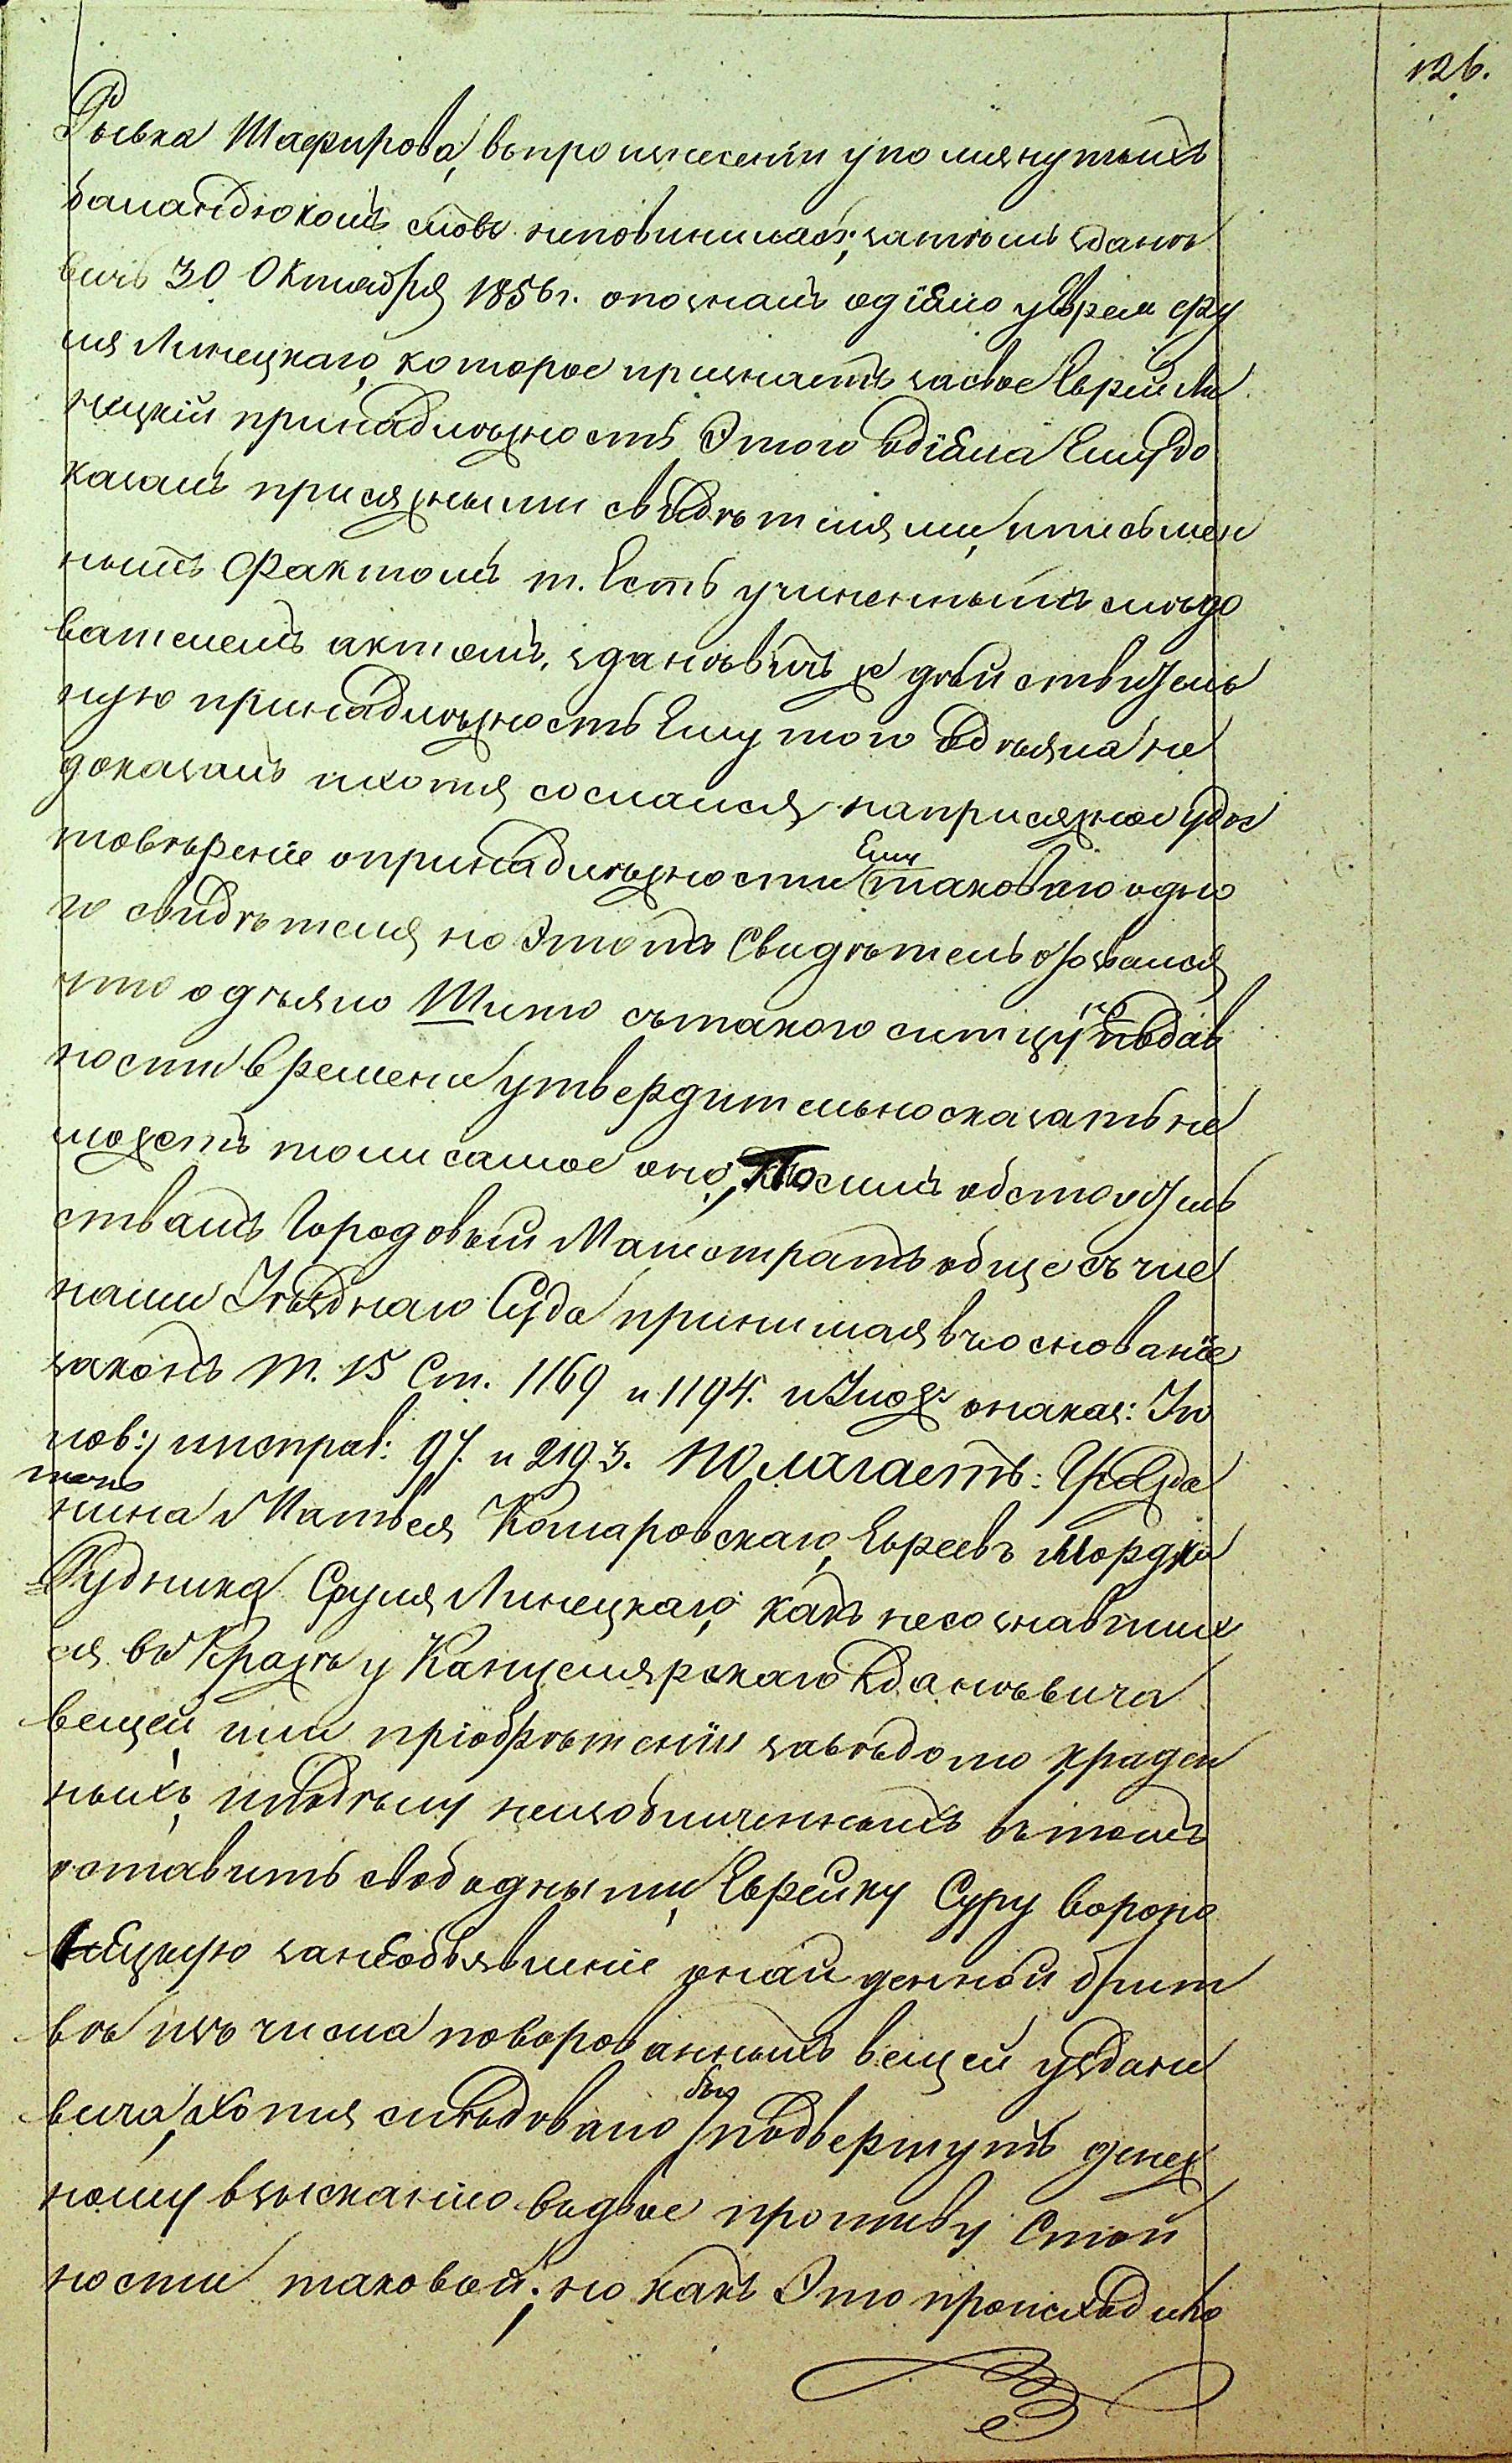 126.
Роська Шафирова, впроизнесеніи упомянутыхъ
баландюкомъ словъ неповинилась; затѣмъ Здане
вичь 30 Октября 1856 г. опозналъ одіяло уеврея Сру
ля Линецкаго, которое признаетъ засвое Еврей Ли
нецкій принадлежность этого одіяла Ему до
казалъ присяжными свидѣтелями, иписьмен
нымъ Фактомъ т. Есть учиненнымъ слѣдо
вателемъ актомъ, здановичь же дѣйствитель
ную принадлежность Ему того одѣяла не
доказалъ ихотя сослался наприсяжное удос
товѣреніе опринадлежности Ему таковаго одно
го свидѣтеля, но этотъ Свидѣтель отозвался
что одѣяло Шито съ такого ситцу подав
ности времени утвердительно сказать не
можетъ толи самое оно, По симъ обстоятель
ствамъ Городовый Магистратъ обще съ чле
нами Уѣзднаго Суда принимая въ основаніе
законъ т. 15 Ст. 1169 и 1194. и Улож: онаказ: Уго
лов: и исправ: 97. и 219.3. Полагаетъ: Гражда
нина Матвея Комаровскаго, Евреевъ Мордка
Рудника, Сруля Линецкаго, какъ несознавших
ся въ Кражѣ у Канцелярскаго Здановича
вещей, или пріобрѣтеніи завѣдомо краден
ныхъ, и по дѣлу неизобличенныхъ въ томъ
оставить свободными, Еврейку Суру Вороно
вицкую за необъявленіе о найденной брит
вѣ изъ числа поворованныхъ вещей у Здане
вича, хотя слѣдовало бы подвергнуть денеж
ному взысканію вдвое противу Стои
ности таковой; но какъ это происходило